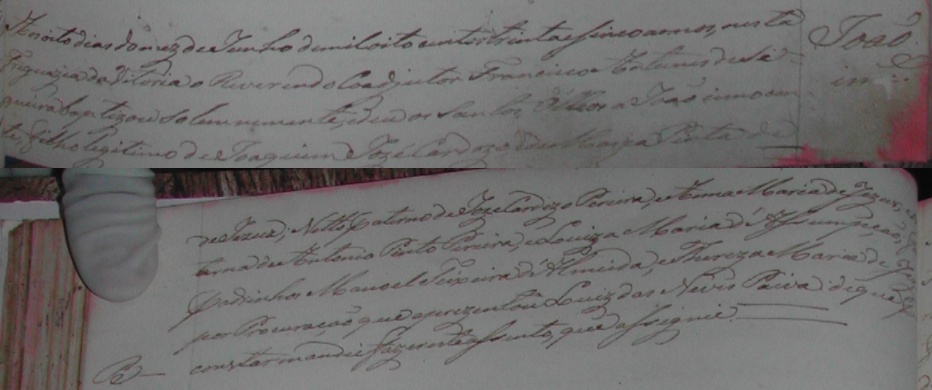 Aos oito dias do mez de Junho de mil oito centos trinta e sinco annos, nesta
Freguezia da Vitoria o Reverendo Coadjutor Francisco Antunes de Si-
queira baptizou Solemnemente, e deu os Santos Olleos a João innocen
te, filho legitimo de Joaquim José Cardozo, e de Maria Pinta de
João
in
de Jezus, Netto paterno de Joze Cardozo Pereira, e Anna Maria de Jezus, e
terna de Antonio Pinto Pereira, e Louiza Maria d'Assumpção,
Padrinhos Manoel Teixeira d'Almeida, e Thereza Maria de Jezus
por Procuração que aprezentou Luiz das Neves Paiva de que
constar mandei fazer este Assento, que assignei.